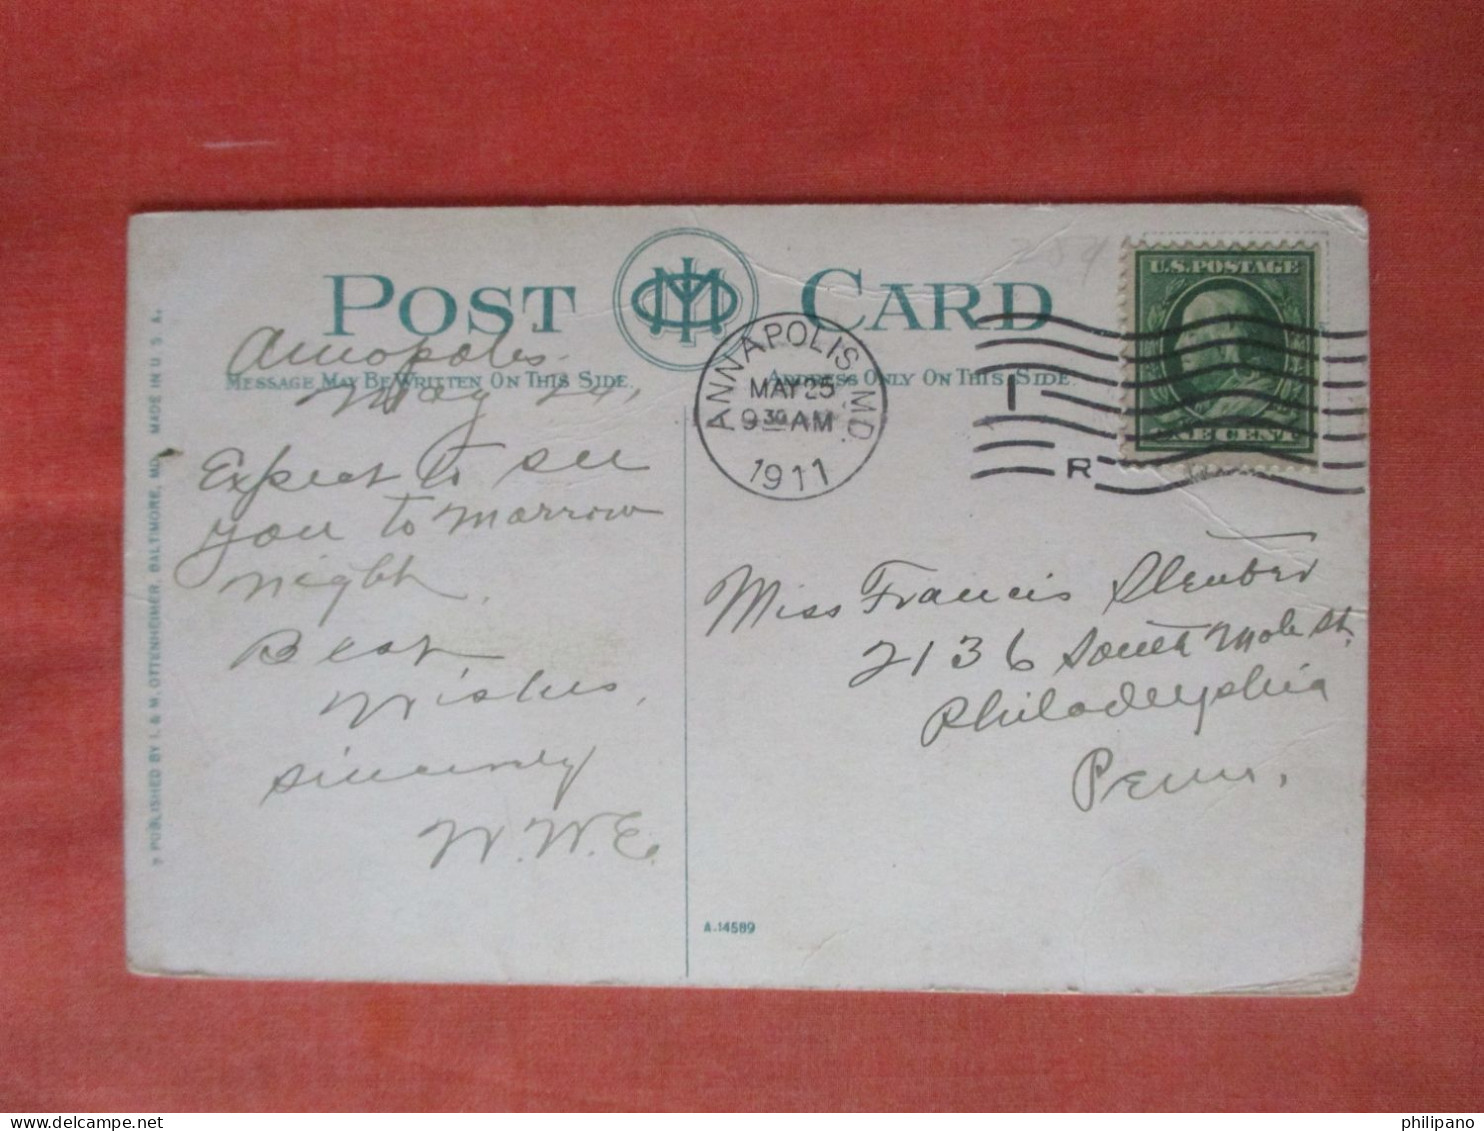 POST CARD
Annapolis.
MESSAGE MAY BE WRITTEN ON THIS SIDE.
ADDRESS ONLY ON THIS SIDE.
May 24,
Expect to see
you to morrow
night.
Best
Wishes,
Sincerely
W.W.E.
© PUBLISHED BY I. & M. OTTENHEIMER, BALTIMORE, MD. MADE IN U. S. A.
ANNAPOLIS MD.
MAY 25
9 30 AM
1911
1
R
284
U.S. POSTAGE
ONE CENT
Miss Francis Sleuber
2136 South Mole St.
Philadelphia
Penn.
A-14589
philipano
delcampe.net